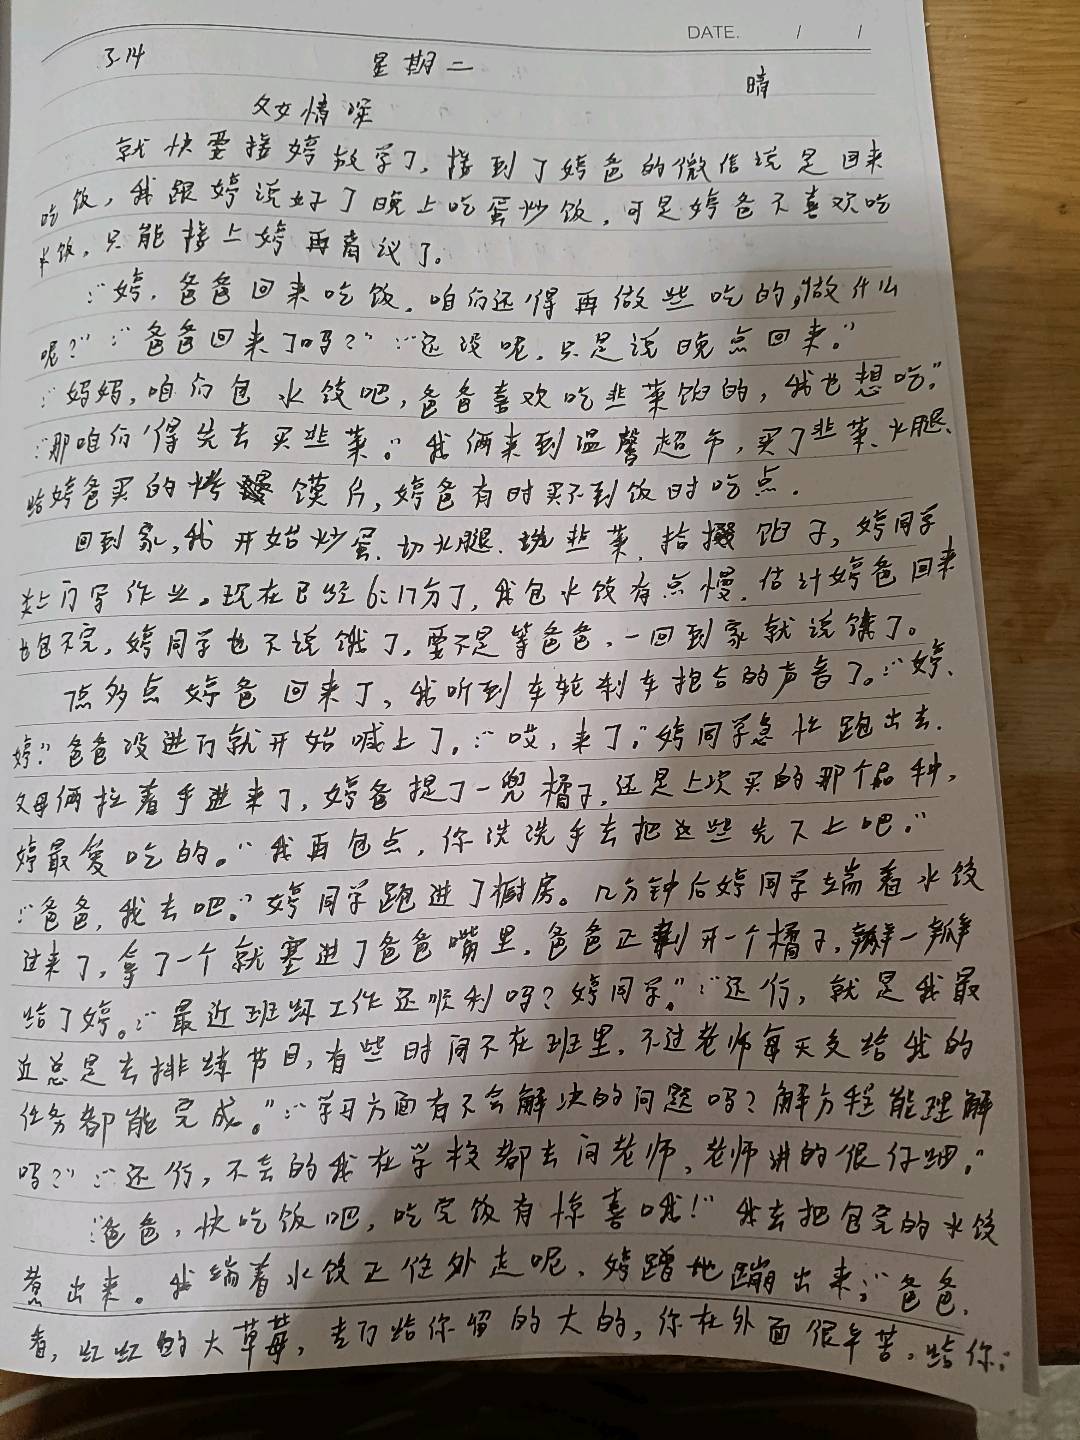 DATE. / /
3.14 星期二 晴
父女情深
就快要接婷放学了,接到了婷爸的微信说是回来
吃饭,我跟婷说好了晚上吃蛋炒饭,可是婷爸不喜欢吃
米饭,只能接上婷再商议了。
:“婷,爸爸回来吃饭,咱们还得再做些吃的,做什么
呢?”:“爸爸回来了吗?”:“还没呢,只是说晚点回来。”
:“妈妈,咱们包水饺吧,爸爸喜欢吃韭菜馅的,我也想吃。”
:“那咱们得先去买韭菜。”我俩来到温馨超市,买了韭菜、火腿、
给婷爸买的烤馍片,婷爸有时买不到饭时吃点.
回到家,我开始炒蛋、切火腿、洗韭菜、拾掇馅子,婷同学
关上门写作业。现在已经6:17分了,我包水饺有点慢,估计婷爸回来
也包不完,婷同学也不说饿了,要不是等爸爸,一回到家就说饿了。
7点多点婷爸回来了,我听到车轮刹车抱合的声音了。:“婷、
婷”爸爸没进门就开始喊上了。:“哎,来了。”婷同学急忙跑出去.
父母俩拉着手进来了,婷爸提了一兜橘子,还是上次买的那个品种,
婷最爱吃的。“我再包点,你洗洗手去把这些先下上吧。”
:“爸爸,我去吧。”婷同学跑进了厨房。几分钟后婷同学端着水饺
过来了,拿了一个就塞进了爸爸嘴里,爸爸正剥开一个橘子,掰一瓣
给了婷。:“最近班级工作还顺利吗?婷同学。”:“还行,就是我最
近总是去排练节目,有些时间不在班里,不过老师每天交给我的
任务都能完成。”:“学习方面有不会解决的问题吗?解方程能理解
吗?”:“还行,不会的我在学校都去问老师,老师讲的很仔细。”
:“爸爸,快吃饭吧,吃完饭有惊喜哦!”我去把包完的水饺
煮出来。我端着水饺正往外走呢,婷蹭地蹦出来:“爸爸,
看,红红的大草莓,专门给你留的大的,你在外面很辛苦,给你: